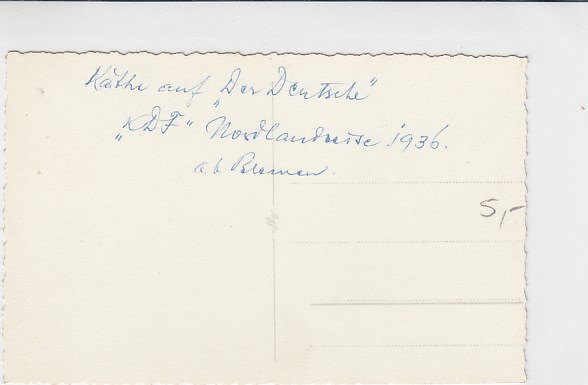 Käthe auf „Der Deutsche"
„KDF" Nordlandreise 1936.
ab Bremen.
5,-